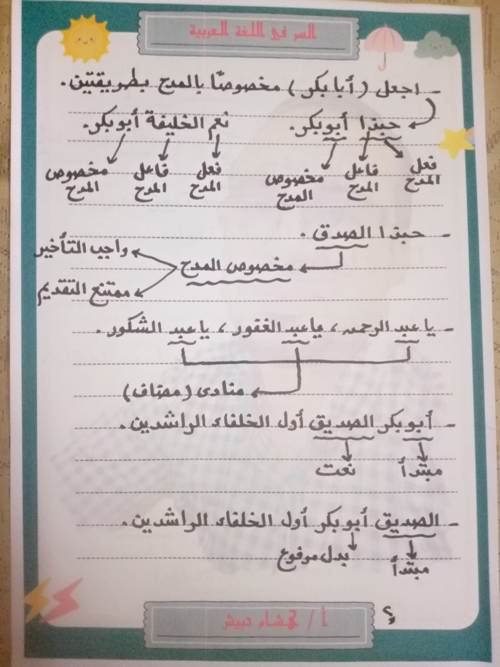 السر في اللغة العربية
- اجعل (أبا بكر) مخصوصًا بالمدح بطريقتين.
حبذا أبو بكر. نعم الخليفة أبو بكر.
فعل المدح فاعل المدح مخصوص المدح فعل المدح فاعل المدح مخصوص المدح
- حبذا الصدق.
مخصوص المدح
واجب التأخير
ممتنع التقديم
- يا عبد الرحمن، يا عبد الغفور، يا عبد الشكور.
منادى (مضاف)
- أبو بكر الصديق أول الخلفاء الراشدين.
مبتدأ نعت
- الصديق أبو بكر أول الخلفاء الراشدين.
مبتدأ بدل مرفوع
أ / هشام حبيش